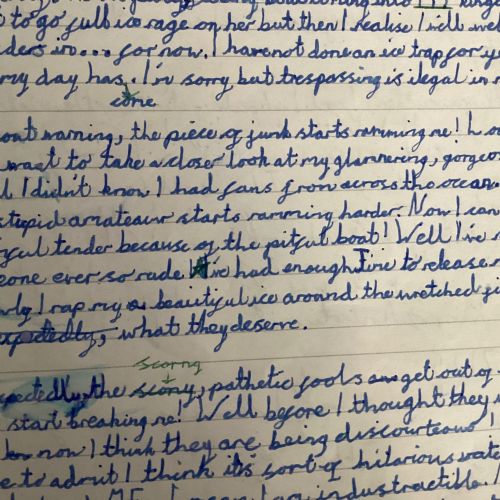 to go full ice rage on her but then I realise I will wel
ders in... for now. I have not done an ice trap for ye
my day has. I'm sorry but trespassing is ilegal in m
come
out warning, the piece of junk starts ramming me! I
want to take a closer look at my glammering, gorgeo
I didn't know I had fans from across the ocean
stupid amateaur starts ramming harder. Now I can
ful tender because of the pitful boat! Well I've
eone ever so rude. I've had enough. Time to release
ly I rap my beautiful ice around the wretched
expectedly, what they deserve.
scorng
pectedly, the scorny, pathetic fools get out of
start breaking me! Well before I thought they
now I think they are being discourteous
e to admit I think it's sort of hilarious
ME I mean I am industractible.